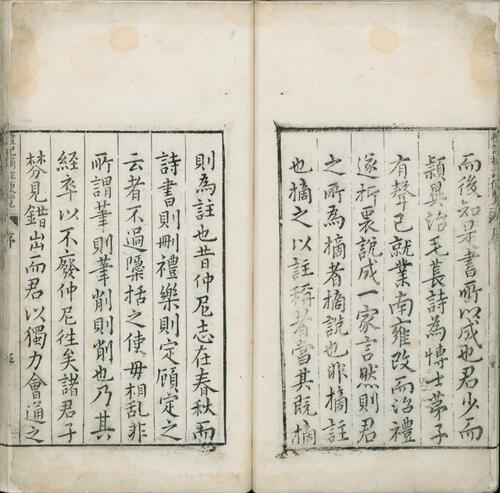 而後知是書所以成也君少而
頴異治毛萇詩為博士苐子
有聲已就業南雍改而治禮
遂折裏說成一家言然則君
之所為摘者摘說也非摘註
也摘之以註稱者當其既摘
則為註也昔仲尼志在春秋而
詩書則刪禮樂則定顧定之
云者不過檃括之使毋相亂非
所謂筆則筆削則削也乃其
經卒以不廢仲尼徃矣諸君子
棼見錯出而君以獨力會通之
序